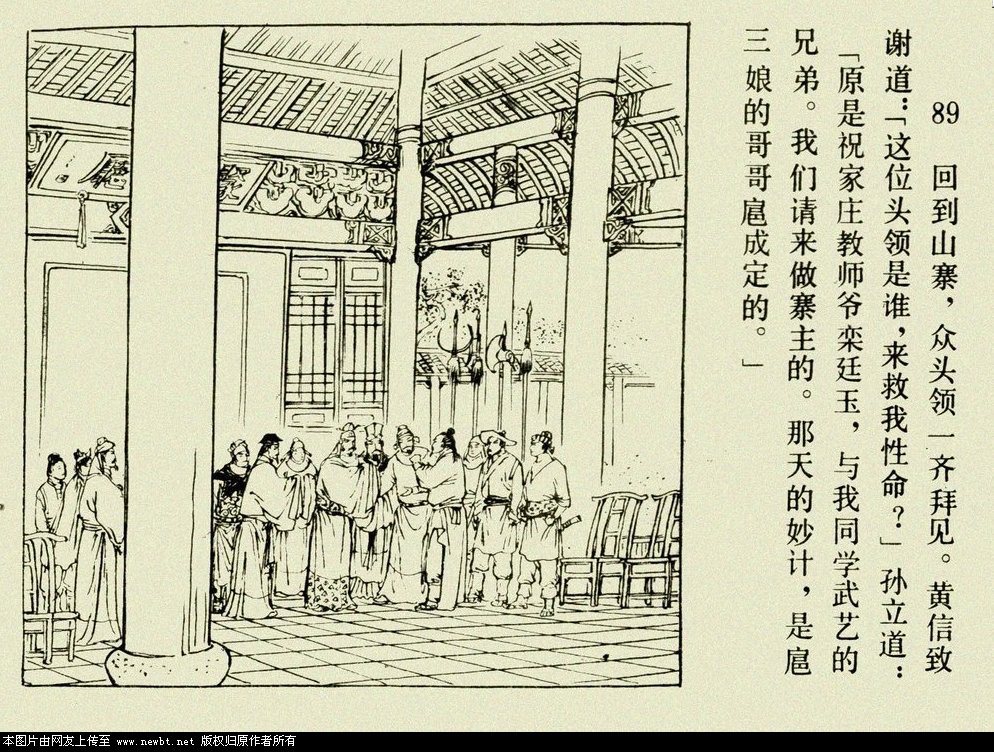 89 回到山寨，众头领一齐拜见。黄信致
谢道：「这位头领是谁，来救我性命？」孙立道：
「原是祝家庄教师爷栾廷玉，与我同学武艺的
兄弟。我们请来做寨主的。那天的妙计，是扈
三娘的哥哥扈成定的。」
本图片由网友上传至 www.newbt.net 版权归原作者所有